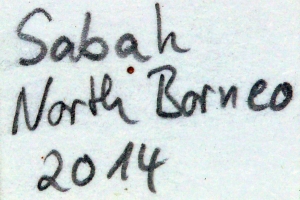 Sabah
North Borneo
2014